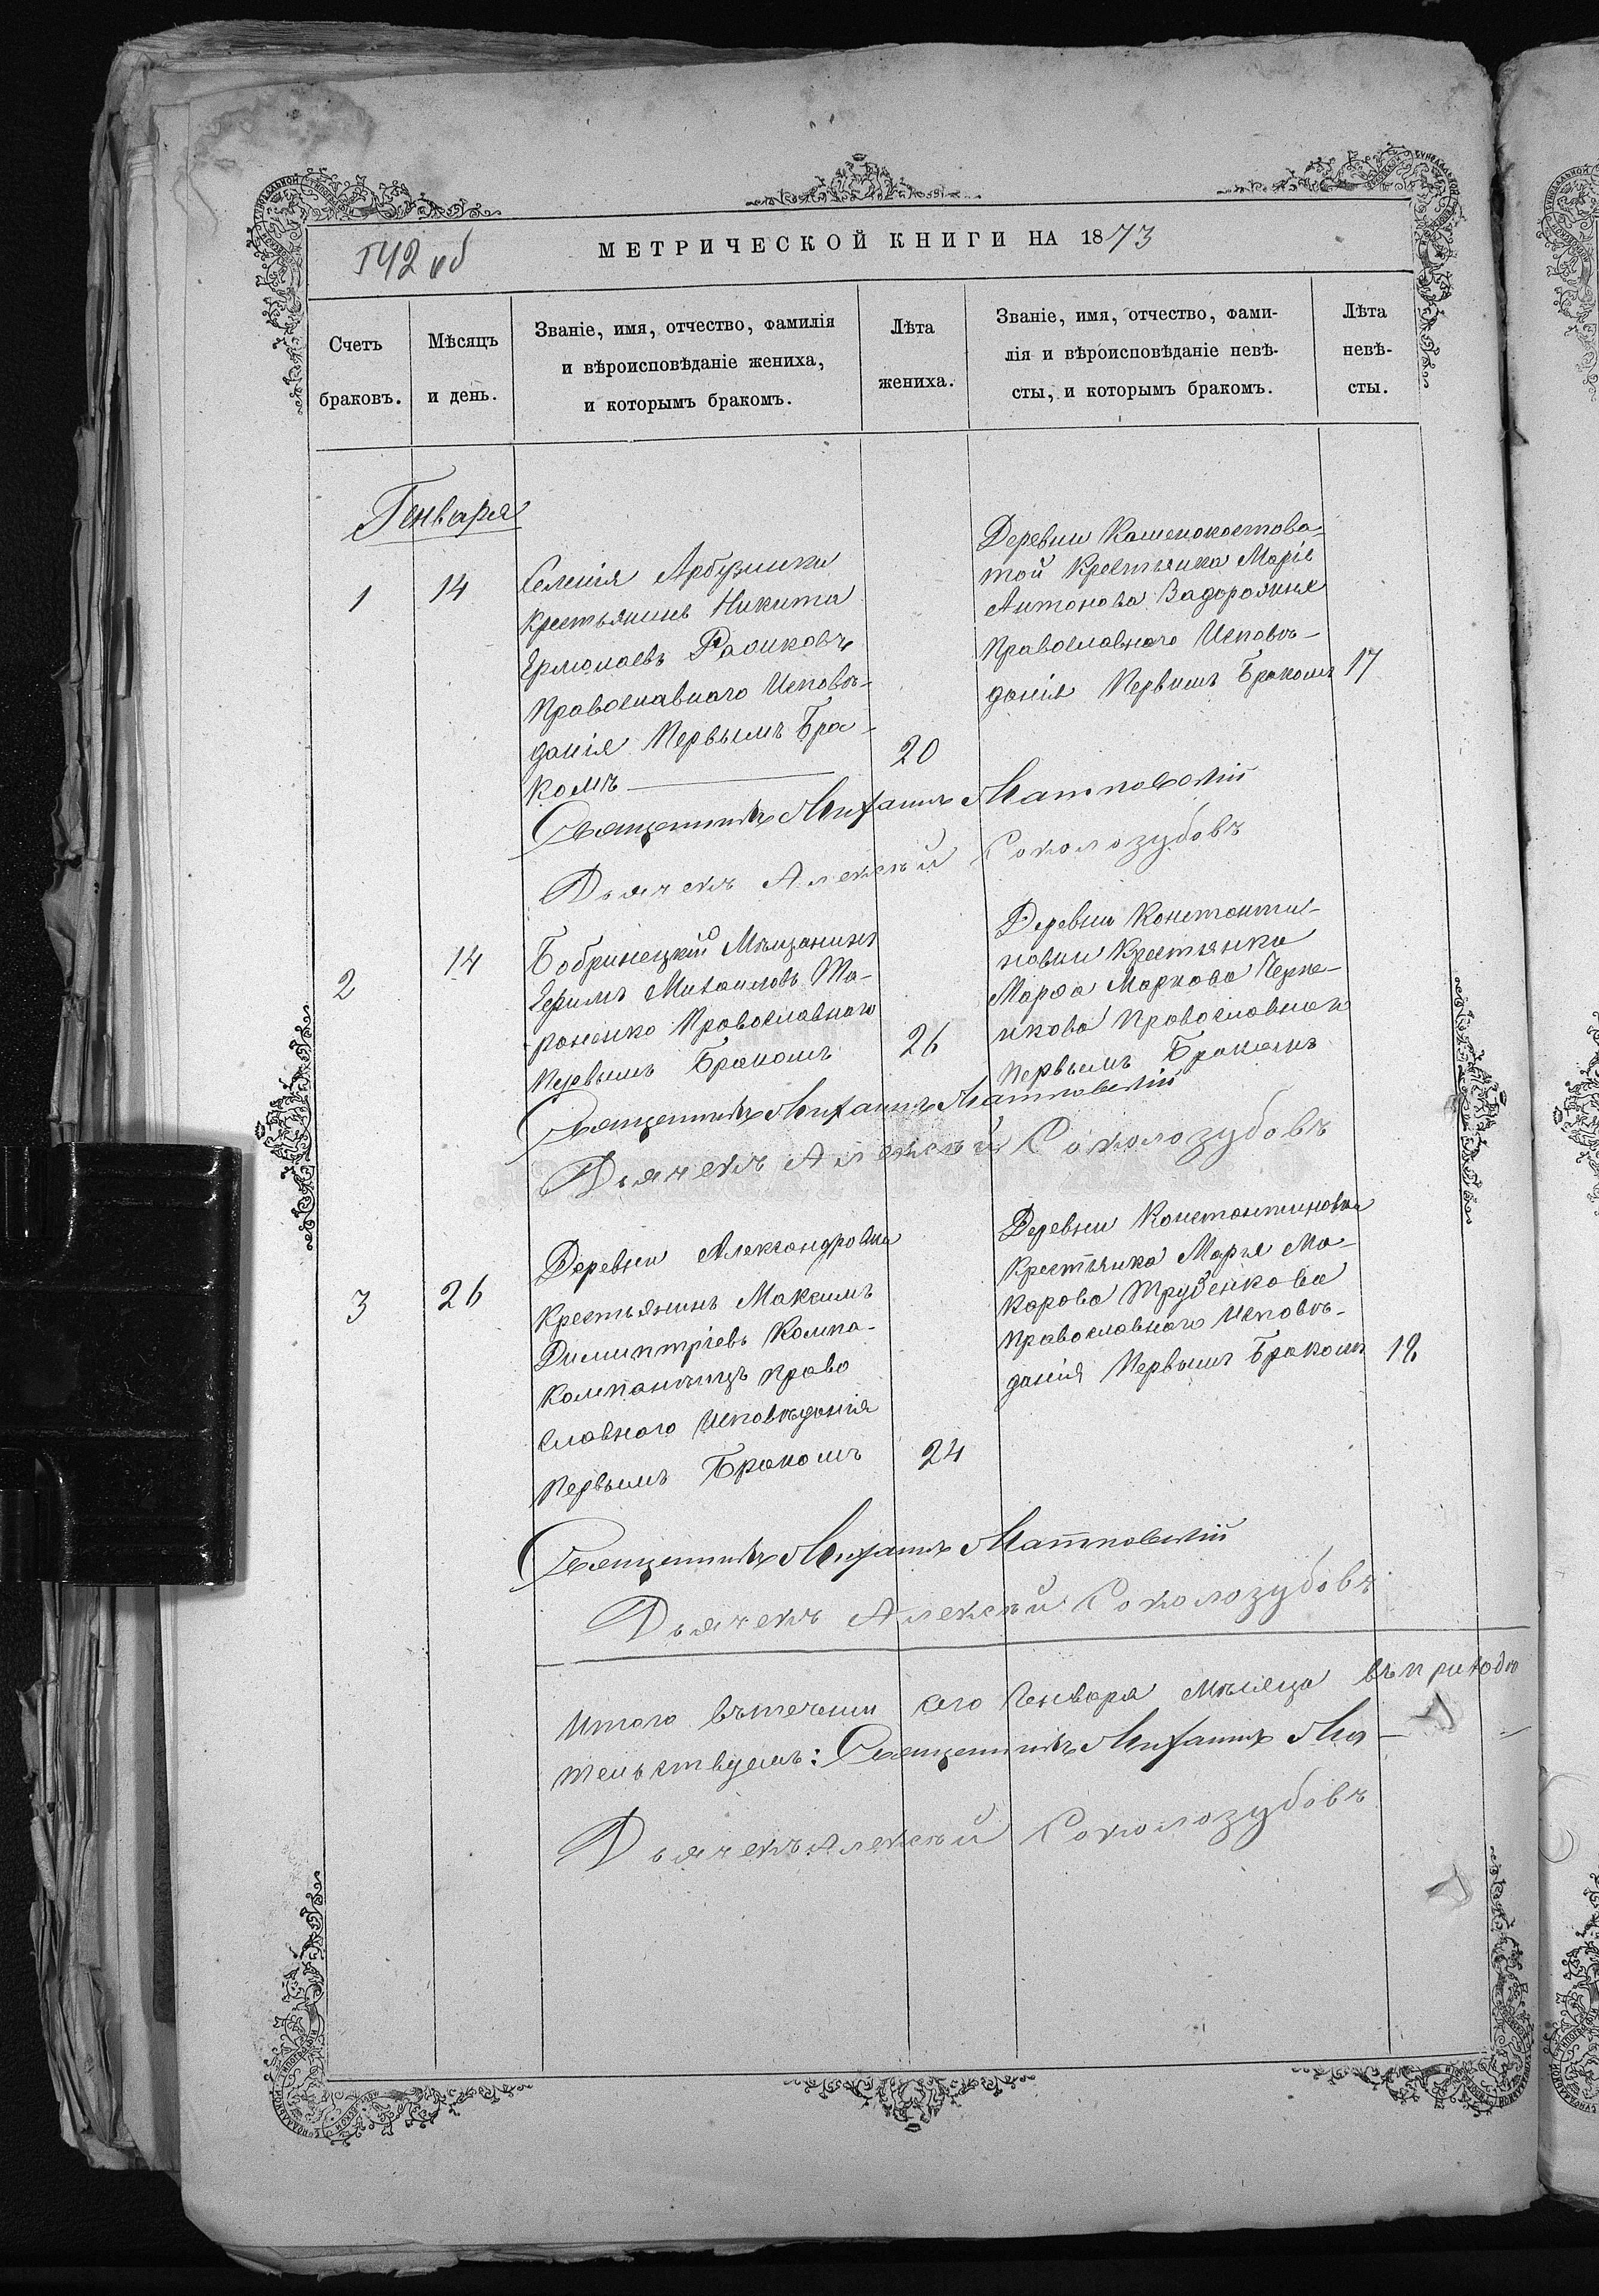 МЕТРИЧЕСКОЙ КНИГИ НА 1873
142 об
Счетъ браковъ.
Мѣсяцъ и день.
Званіе, имя, отчество, фамилія
и вѣроисповѣданіе жениха,
и которымъ бракомъ.
Лѣта жениха.
Званіе, имя, отчество, фами-
лія и вѣроисповѣданіе невѣ-
сты, и которымъ бракомъ.
Лѣта невѣ-
сты.
Генваря
1
14
Селенія Арбузинки
Крестьянинъ Никита
Ермолаевъ
Православнаго Исповѣ-
данія Первымъ Бра-
комъ
20
Деревни Каменокостова-
той Крестьянка Марія
Антонова Задорожная
Православнаго Исповѣ-
данія Первымъ Бракомъ
17
Священникъ Михаилъ
Дьячекъ Алексѣй Соколозубовъ
2
14
Бобринецкій Мѣщанинъ
Ефимъ Михаиловъ Та-
раненко Православнаго
Первымъ Бракомъ
26
Деревни Константи-
новки Крестьянка
Марѳа Маркова
Православнаго
Первымъ Бракомъ
Священникъ Михаилъ
Дьячекъ Алексѣй Соколозубовъ
3
26
Деревни Александровки
Крестьянинъ Максимъ
Димитріевъ Компа-
Право
славнаго Исповѣданія
Первымъ Бракомъ
24
Деревни Константиновки
Крестьянка Марья Ма-
карова
Православнаго Исповѣ-
данія Первымъ Бракомъ
19
Священникъ Михаилъ
Дьячекъ Алексѣй Соколозубовъ
Итого втеченіи сего Генваря Мѣсяца въ приходо
тельствуемъ: Священникъ Михаилъ Ма-
Дьячекъ Алексѣй Соколозубовъ